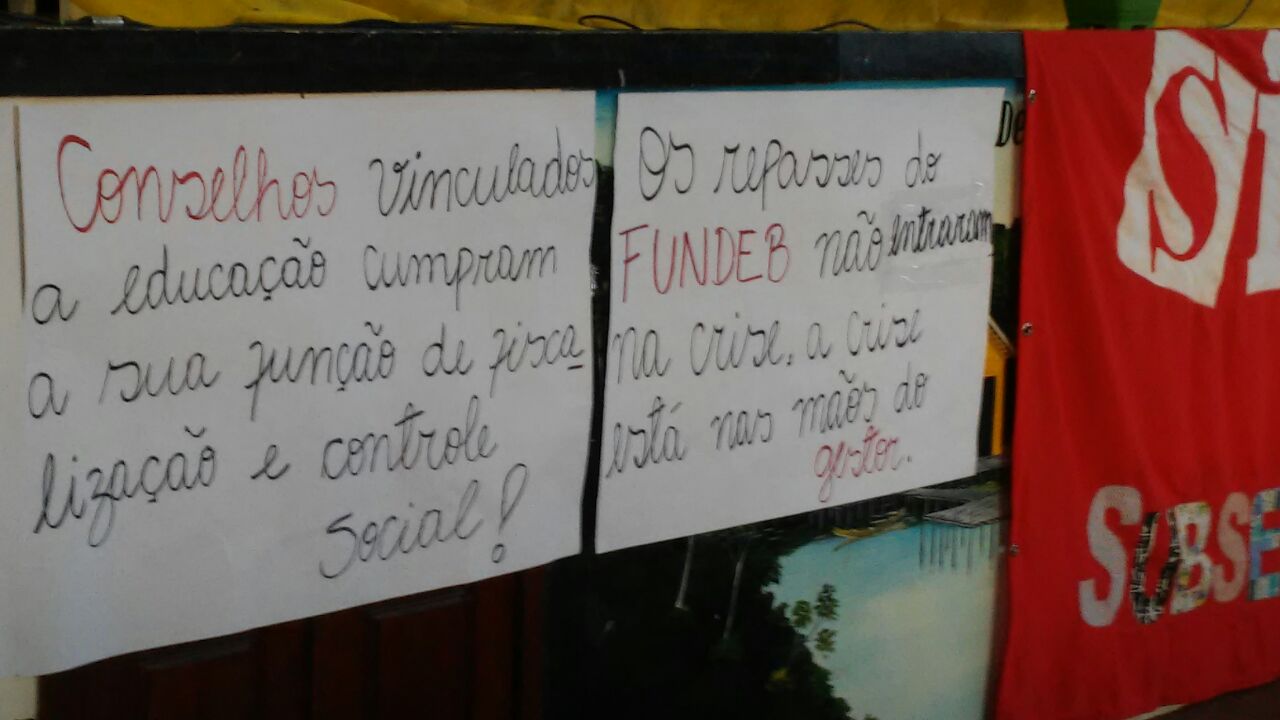 Conselhos vinculados
a educação cumpram
a sua função de fisca
lização e controle
Social!
Os repasses do
FUNDEB não entraram
na crise, a crise
está nas mãos do
gestor.
De
SI
SUBSE